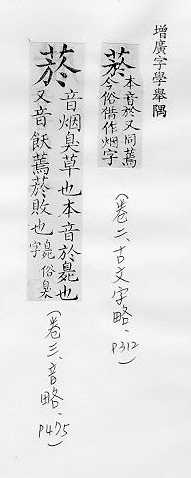 增廣字學舉隅
菸本音於又同蔫
今俗借作烟字
(卷二、古文字略、P312)
菸音烟臭草也本音於臰也
又音飫蔫菸敗也臰俗臭
字
(卷三、音略、P475)